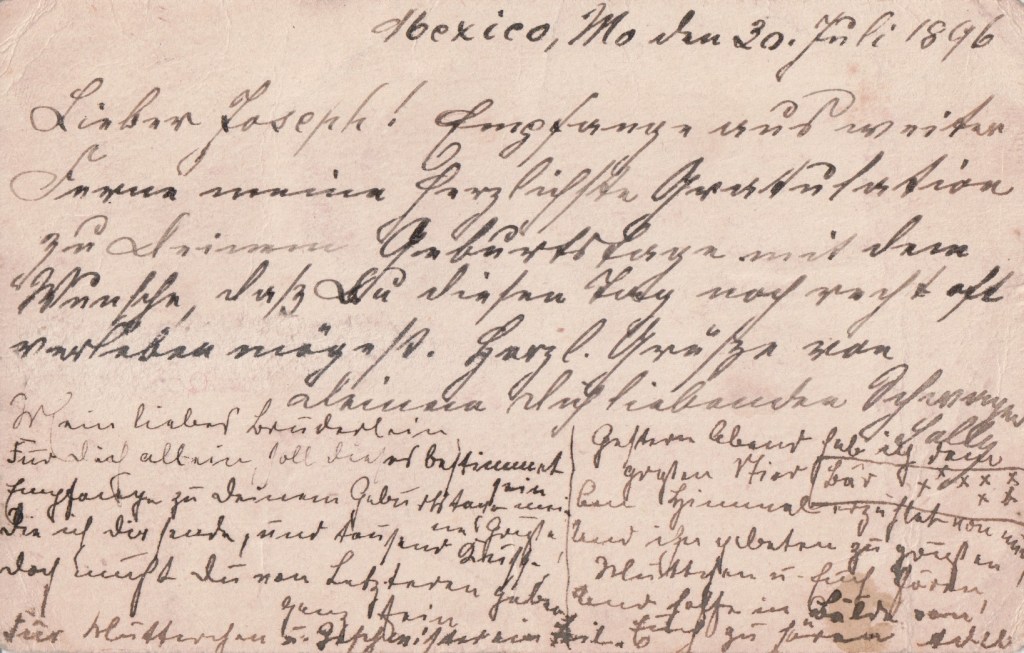 Mexico, Mo den 30. Juli 1896
Lieber Joseph! Empfange aus weiter
Ferne meine herzlichste Gratulation
zu Deinem Geburtstage mit dem
Wunsche, daß Du diesen Tag noch recht oft
verleben mögest. Herzl. Grüße von
Deinem Dich liebenden Schwager
Sally
Mein liebes Brüderlein
Für Dich allein, soll dieses bestimmet sein
Empfange zu Deinem Geburtstage meine Grüße,
Die ich dir sende, und tausend Küsse,
Doch mußt Du von Letzteren geben
ganz fein
Für Mutterchen u. Geschwisterlein
Gestern Abend hab ich dem
großen Bär
am Himmel erzählet von
und ihn gebeten zu grüßen
Muttchen u. Euch
und hoffe in Bälde von
Euch zu hören